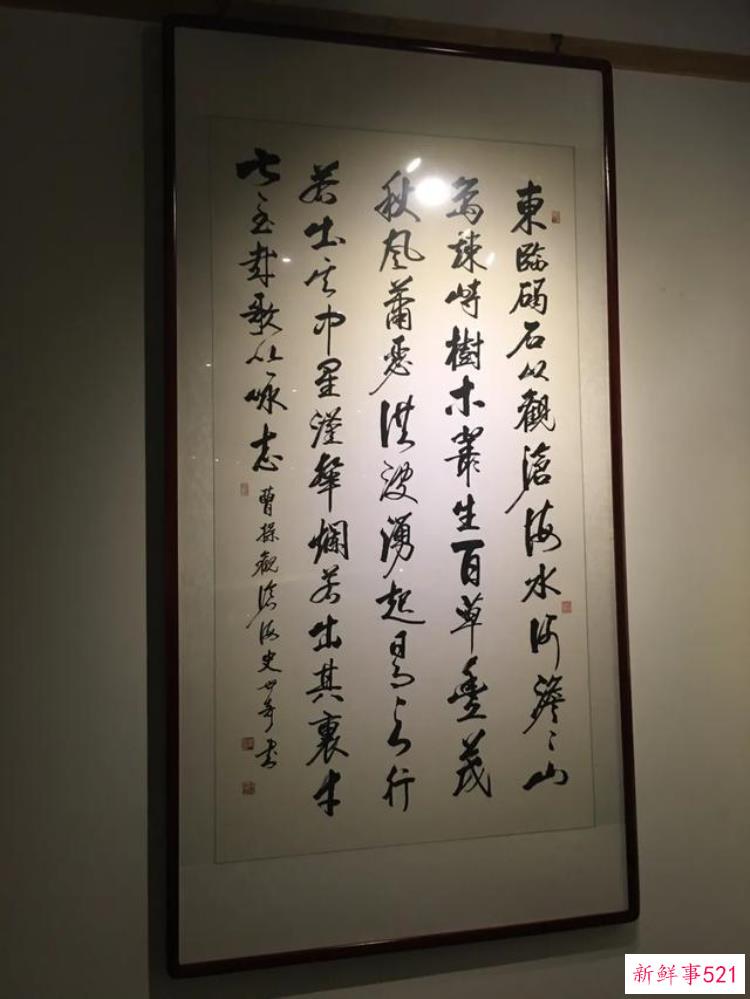 東臨碣石以觀滄海水何澹〻山
島竦峙樹木叢生百草豐茂
秋風蕭瑟洪波湧起日月之行
若出其中星漢爛若出其裏幸
甚至哉歌以咏志 曹操觀滄海史世奇書
新鲜事521